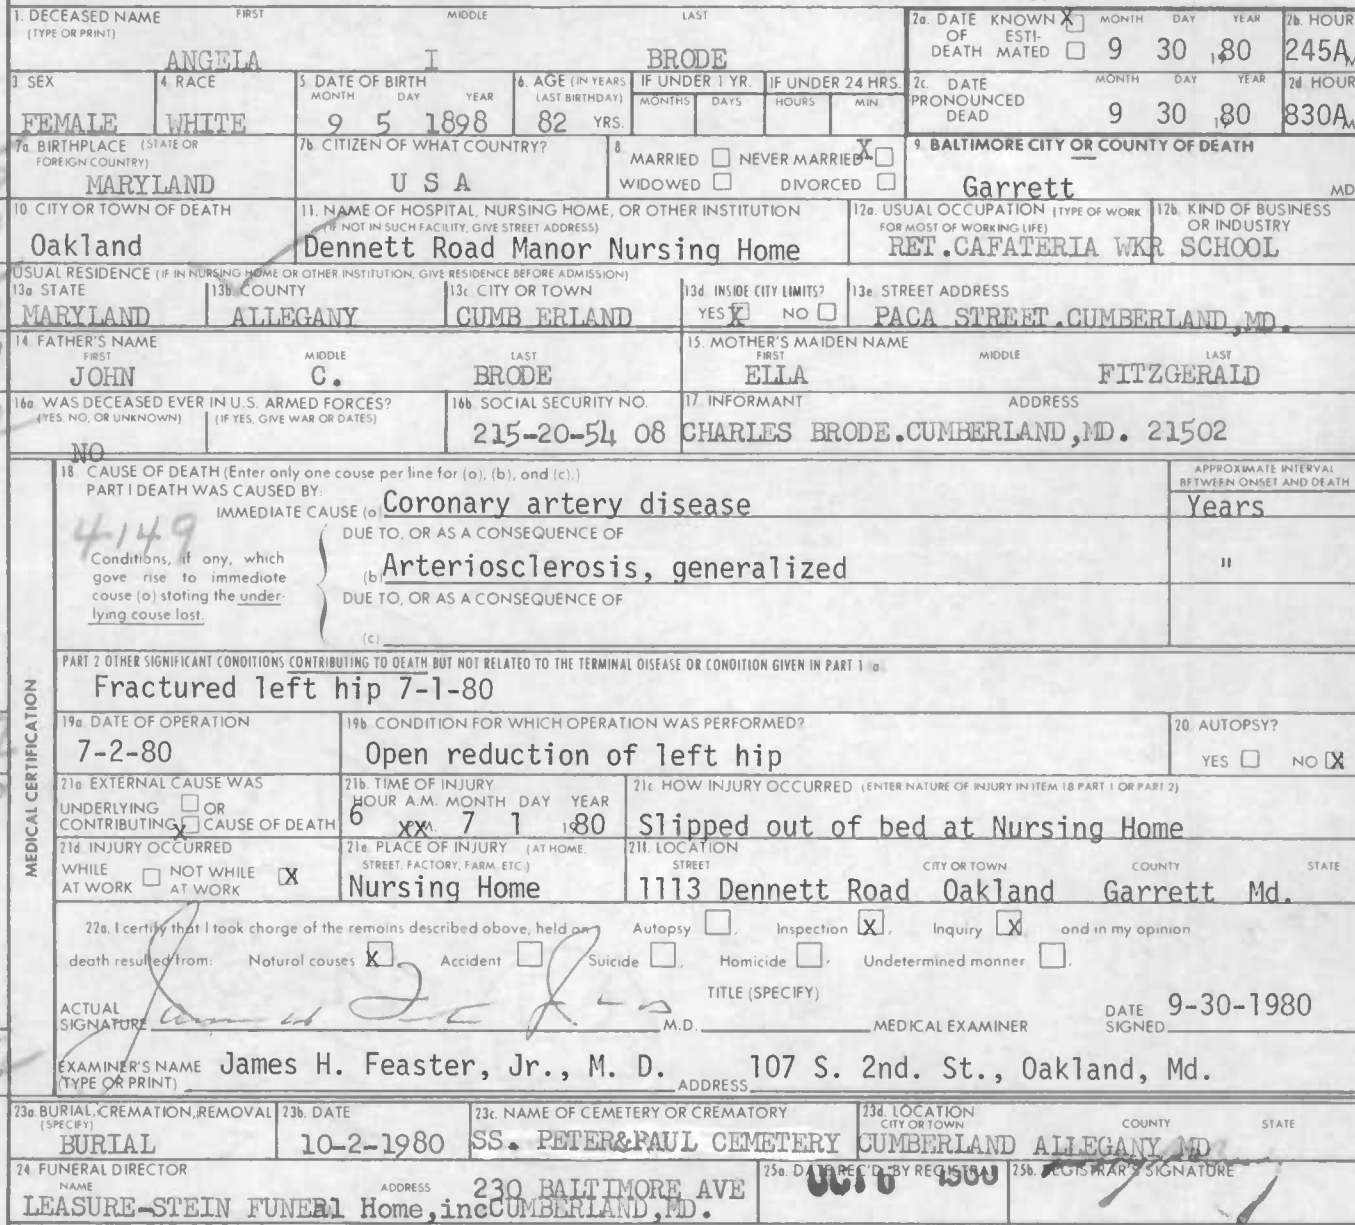 1. DECEASED NAME (TYPE OR PRINT) FIRST MIDDLE LAST
ANGELA I BRODE
2a. DATE OF DEATH KNOWN X ESTIMATED MONTH DAY YEAR
9 30 1980
2b. HOUR
245A M
3 SEX
FEMALE
4 RACE
WHITE
5 DATE OF BIRTH MONTH DAY YEAR
9 5 1898
6. AGE (IN YEARS LAST BIRTHDAY)
82 YRS.
IF UNDER 1 YR. MONTHS DAYS
IF UNDER 24 HRS. HOURS MIN.
2c. DATE PRONOUNCED DEAD MONTH DAY YEAR
9 30 1980
2d HOUR
830A M
7a BIRTHPLACE (STATE OR FOREIGN COUNTRY)
MARYLAND
7b. CITIZEN OF WHAT COUNTRY?
U S A
8. MARRIED NEVER MARRIED X
WIDOWED DIVORCED
9. BALTIMORE CITY OR COUNTY OF DEATH
Garrett MD
10 CITY OR TOWN OF DEATH
Oakland
11. NAME OF HOSPITAL, NURSING HOME, OR OTHER INSTITUTION
(IF NOT IN SUCH FACILITY, GIVE STREET ADDRESS)
Dennett Road Manor Nursing Home
12a. USUAL OCCUPATION (TYPE OF WORK FOR MOST OF WORKING LIFE)
RET.CAFATERIA WKR
12b. KIND OF BUSINESS OR INDUSTRY
SCHOOL
USUAL RESIDENCE (IF IN NURSING HOME OR OTHER INSTITUTION, GIVE RESIDENCE BEFORE ADMISSION)
13a STATE
MARYLAND
13b. COUNTY
ALLEGANY
13c CITY OR TOWN
CUMB ERLAND
13d. INSIDE CITY LIMITS?
YES X NO
13e STREET ADDRESS
PACA STREET.CUMBERLAND,MD.
14 FATHER'S NAME FIRST MIDDLE LAST
JOHN C. BRODE
15. MOTHER'S MAIDEN NAME FIRST MIDDLE LAST
ELLA FITZGERALD
16a. WAS DECEASED EVER IN U.S. ARMED FORCES?
(YES, NO, OR UNKNOWN) (IF YES, GIVE WAR OR DATES)
NO
16b SOCIAL SECURITY NO.
215-20-54 08
17 INFORMANT ADDRESS
CHARLES BRODE.CUMBERLAND,MD. 21502
MEDICAL CERTIFICATION
18 CAUSE OF DEATH (Enter only one cause per line for (a), (b), and (c).)
APPROXIMATE INTERVAL BETWEEN ONSET AND DEATH
PART I DEATH WAS CAUSED BY:
IMMEDIATE CAUSE (a) Coronary artery disease Years
4149
DUE TO, OR AS A CONSEQUENCE OF
Conditions, if any, which gave rise to immediate cause (a) stating the underlying cause last.
(b) Arteriosclerosis, generalized "
DUE TO, OR AS A CONSEQUENCE OF
(c)
PART 2 OTHER SIGNIFICANT CONDITIONS CONTRIBUTING TO DEATH BUT NOT RELATED TO THE TERMINAL DISEASE OR CONDITION GIVEN IN PART 1 a
Fractured left hip 7-1-80
19a. DATE OF OPERATION
7-2-80
19b CONDITION FOR WHICH OPERATION WAS PERFORMED?
Open reduction of left hip
20. AUTOPSY?
YES NO X
21a EXTERNAL CAUSE WAS
UNDERLYING OR
CONTRIBUTING X CAUSE OF DEATH
21b. TIME OF INJURY
HOUR A.M. MONTH DAY YEAR
6 XX 7 1 1980
21c HOW INJURY OCCURRED (ENTER NATURE OF INJURY IN ITEM 18 PART 1 OR PART 2)
Slipped out of bed at Nursing Home
21d INJURY OCCURRED
WHILE AT WORK NOT WHILE AT WORK X
21e PLACE OF INJURY (AT HOME, STREET, FACTORY, FARM, ETC.)
Nursing Home
21f. LOCATION STREET CITY OR TOWN COUNTY STATE
1113 Dennett Road Oakland Garrett Md.
22a. I certify that I took charge of the remains described above, held an Autopsy , Inspection X , Inquiry X and in my opinion
death resulted from: Natural causes X , Accident Suicide , Homicide , Undetermined manner ,
TITLE (SPECIFY)
ACTUAL SIGNATURE M.D. MEDICAL EXAMINER
DATE SIGNED 9-30-1980
EXAMINER'S NAME (TYPE OR PRINT) James H. Feaster, Jr., M. D. ADDRESS 107 S. 2nd. St., Oakland, Md.
23a. BURIAL, CREMATION, REMOVAL (SPECIFY)
BURIAL
23b. DATE
10-2-1980
23c. NAME OF CEMETERY OR CREMATORY
SS. PETER&PAUL CEMETERY
23d. LOCATION CITY OR TOWN COUNTY STATE
CUMBERLAND ALLEGANY MD
24 FUNERAL DIRECTOR NAME ADDRESS
230 BALTIMORE AVE
LEASURE-STEIN FUNERal Home,incCUMBERLAND,MD.
25a. DATE REC'D BY REGISTRAR
OCT 6 1980
25b. REGISTRAR'S SIGNATURE